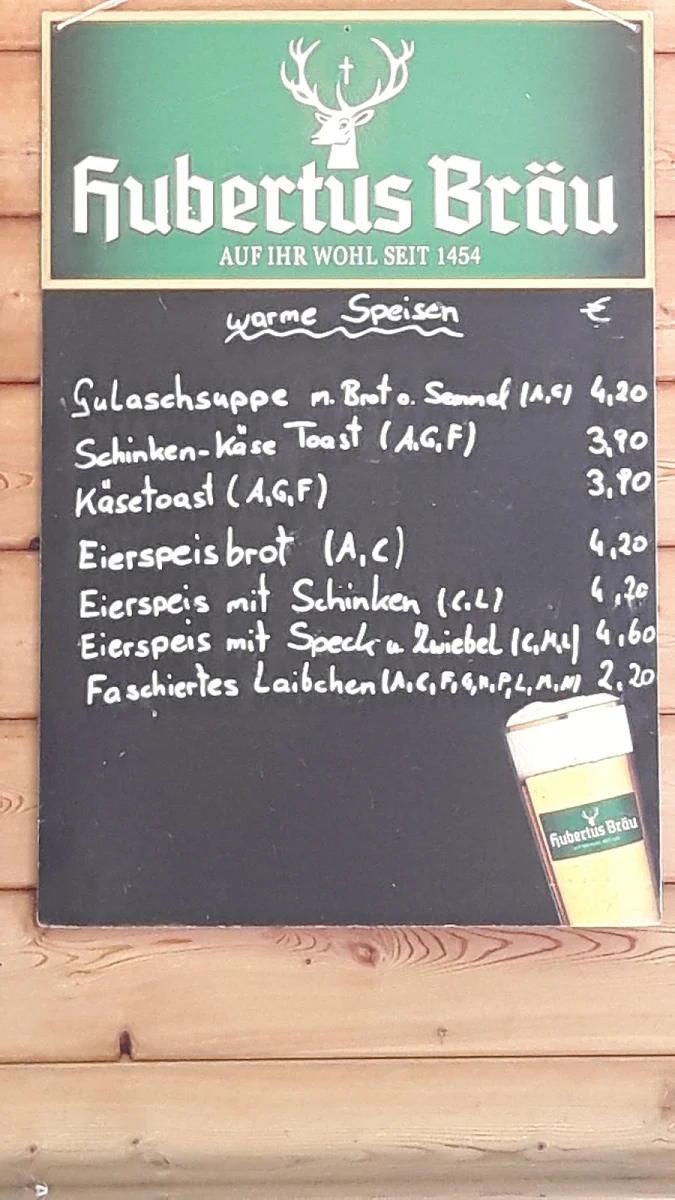 Hubertus Bräu
AUF IHR WOHL SEIT 1454
warme Speisen €
Gulaschsuppe m. Brot o. Semmel (A,C) 4,20
Schinken-Käse Toast (A,G,F) 3,90
Käsetoast (A,G,F) 3,90
Eierspeisbrot (A,C) 4,20
Eierspeis mit Schinken (C,L) 4,70
Eierspeis mit Speck u Zwiebel (C,M,L) 4,60
Faschiertes Laibchen 2,20
Hubertus Bräu